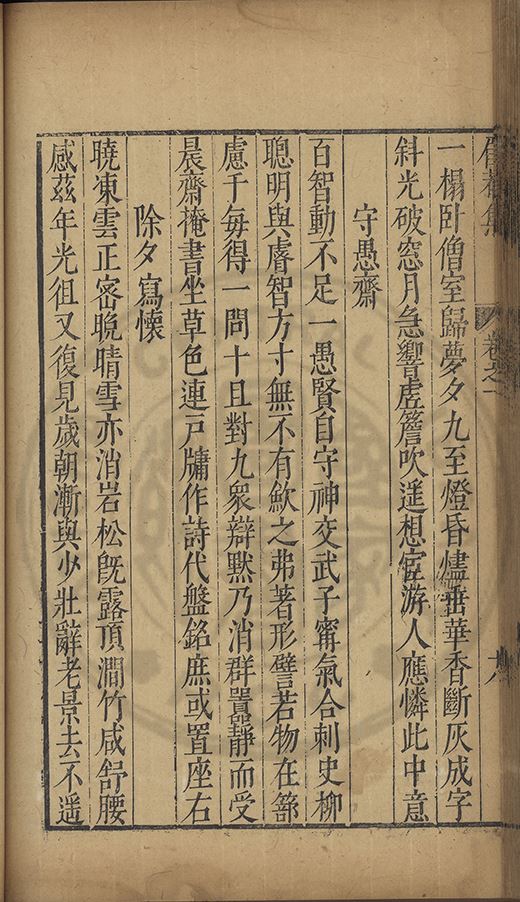 卷之一
一榻卧僧室歸夢夕九至燈昏燼垂華香斷灰成字
斜光破窓月急響虚簷吹遥想宦游人應憐此中意
守愚齋
百智動不足一愚賢自守神交武子甯氣合刺史柳
聰明與睿智方寸無不有歛之弗著形譬若物在蔀
慮千每得一問十且對九衆辯黙乃消群囂靜而受
晨齋掩書坐草色連戸牖作詩代盤銘庶或置座右
除夕寫懷
曉凍雲正密晚晴雪亦消岩松既露頂澗竹咸舒腰
感茲年光徂又復見歲朝漸與少壯辭老景去不遥